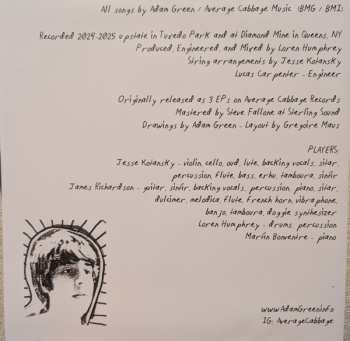 All songs by Adam Green / Average Cabbage Music (BMG / BMI)
Recorded 2024-2025 upstate in Tuxedo Park and at Diamond Mine in Queens, NY
Produced, Engineered, and Mixed by Loren Humphrey
String arrangements by Jesse Kotansky
Lucas Carpenter - Engineer
Originally released as 3 EPs on Average Cabbage Records
Mastered by Steve Fallone at Sterling Sound
Drawings by Adam Green - Layout by Gregoire Maus
PLAYERS:
Jesse Kotansky - violin, cello, oud, lute, backing vocals, sitar,
percussion, flute, bass, erhu, tamboura, sintir
James Richardson - guitar, sintir, backing vocals, percussion, piano, sitar,
dulcimer, melodica, flute, french horn, vibraphone,
banjo, tamboura, doggie synthesizer
Loren Humphrey - drums, percussion
Martin Bonventre - piano
www.AdamGreen.info
IG: AverageCabbage